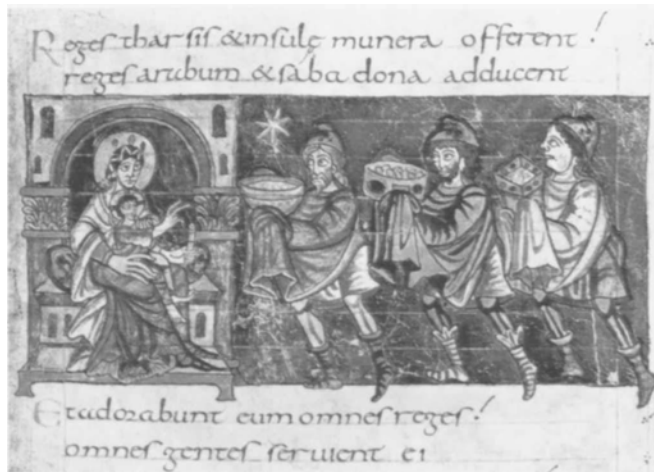 Reges tharsis & insulę munera offerent!
reges arabum & saba dona adducent
Et adorabunt eum omnes reges!
omnes gentes seruient ei